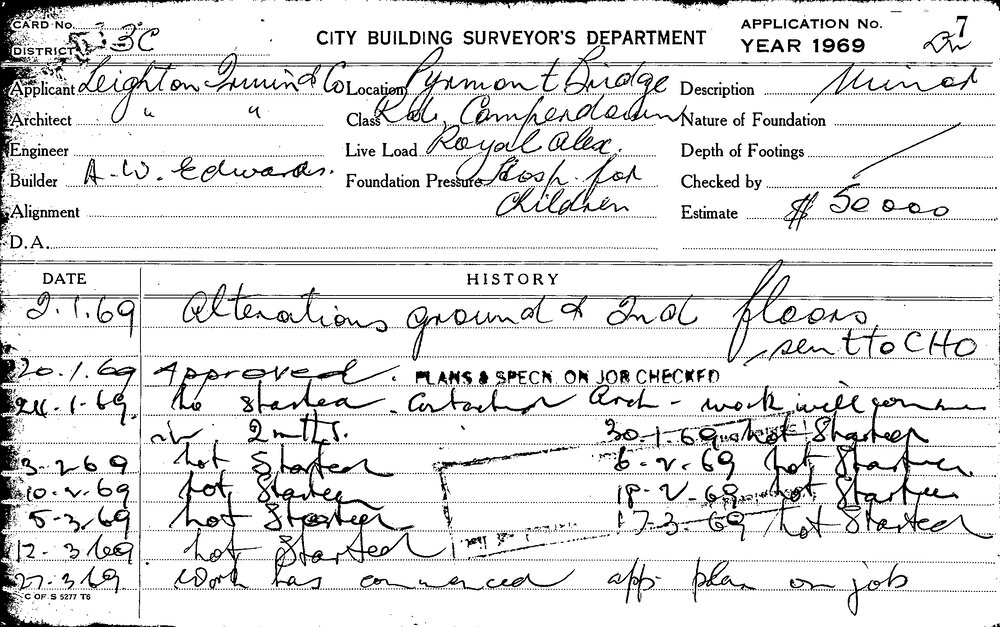 CARD No.
DISTRICT 3C
CITY BUILDING SURVEYOR'S DEPARTMENT
APPLICATION No. 7
YEAR 1969
Applicant Leighton Irwin & Co Location Pyrmont Bridge Description Minor
Architect " " Class Rd. Camperdown Nature of Foundation
Engineer Live Load Royal Alex. Depth of Footings
Builder A. W. Edwards. Foundation Pressure Hosp. for Checked by
Alignment Children Estimate $ 50 000
D.A.
DATE HISTORY
2.1.69 Alterations ground & 2nd floors
sent to CHO
20.1.69 Approved. PLANS & SPECN ON JOB CHECKED
24.1.69. Started Arch - work will
in 2 mths. 30-1-69 not Started
3-2-69 not Started 6-2-69 not Started
10-2-69 not Started 18-2-69 not Started
5-3-69 not Started 17-3-69 not Started
12-3-69 not Started
27-3-69. Work has commenced app. plan on job
C OF S 5277 T6